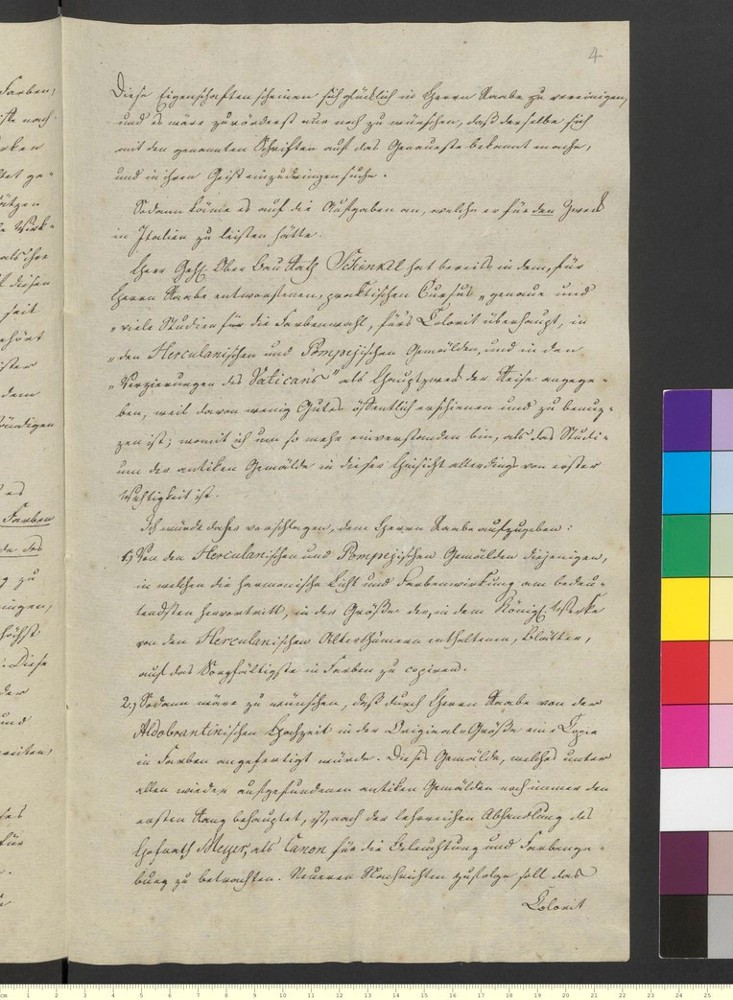 4
Diese Eigenschaften scheinen sich glücklich in Herrn Raabe zu vereinigen,
und es wäre zuvörderst nur noch zu wünschen, daß derselbe sich
mit den genannten Schriften auf das Genaueste bekannt mache,
und in ihren Geist einzudringen suche.
Sodann käme es auf die Aufgaben an, welche er für den Zweck
in Italien zu leisten hätte.
Herr Geh. Ober Bau Rath Schinkel hat bereits in dem, für
Herrn Raabe entworfenen, praktischen Cursus „genaue und
„viele Studien für die Farbenwahl, fürs Colorit überhaupt, in
„den Herculanischen und Pompejischen Gemälden, und in den
„Verzierungen des Vaticans" als Hauptzweck der Reise angege-
ben, weil davon wenig Gutes öffentlich erschienen und zu benuz-
zen ist; womit ich um so mehr einverstanden bin, als das Studi-
um der antiken Gemälde in dieser Hinsicht allerdings von erster
Wichtigkeit ist.
Ich würde daher vorschlagen, dem Herrn Raabe aufzugeben:
1.) Von den Herculanischen und Pompejischen Gemälden diejenigen,
in welchen die harmonische Licht und Farbenwirkung am bedeu-
tendsten hervortritt, in der Größe der, in dem Königl. Werke
von den Herculanischen Alterthümern enthaltenen, Blätter,
auf das Sorgfältigste in Farben zu copiren.
2.) Sodann wäre zu wünschen, daß durch Herrn Raabe von der
Aldobrantinischen Hochzeit in der Original-Größe eine Copie
in Farben angefertigt würde. Dieses Gemälde, welches unter
allen wieder aufgefundenen antiken Gemälden noch immer den
ersten Rang behauptet, ist, nach der lehrreichen Abhandlung des
Hofrath Meyer, als Canon für die Beleuchtung und Farbenge-
bung zu betrachten. Neueren Nachrichten zufolge soll das
Colorit